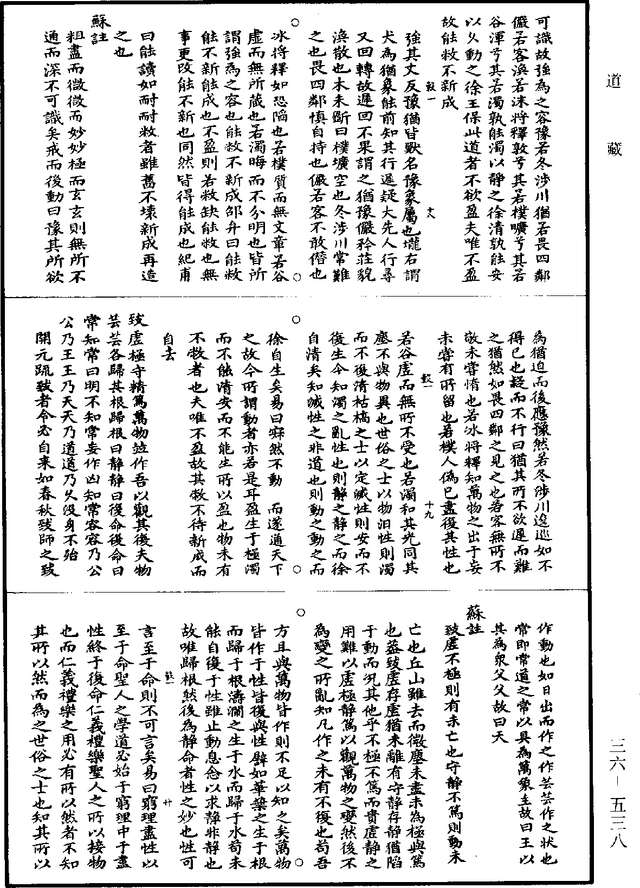 道藏
可識故強為之容豫若冬涉川猶若畏四鄰
儼若客渙若冰將釋敦兮其若樸曠兮其若
谷渾兮其若濁孰能濁以靜之徐清孰能安
以久動之徐生保此道者不欲盈夫唯不盈
故能敝不新成
強其丈反豫猶皆獸名豫象屬也壠右謂
犬為猶象能前知其行遲疑犬先人行尋
又回轉故遲回不果謂之猶豫儼矜莊貌
渙散也木未斷曰樸壙空也冬涉川常難
之也畏四鄰慎自持也儼若客不敢僭也
冰將釋如恐陷也若樸質而無文章若谷
虛而無所藏也若濁晦而不分明也皆所
謂強為之容也能敝不新成邵弁曰能敝
能不新能成也不盈則若敝缺能敝也無
事更改能不新也同然皆得能成也紀甫
曰能讀如耐耐敝者雖舊不壞新成再造
之也
蘇註
粗盡而微微而妙妙極而玄玄則無所不
通而深不可識矣戒而後動曰豫其所欲
為猶迫而後應豫然若冬涉川逡巡如不
得已也疑而不行曰猶其所不欲遲而難
之猶然如畏四鄰之見之也若客無所不
敬未嘗惰也若冰將釋知萬物之出于妄
未嘗有所留也若樸人偽已盡復其性也
若谷虛而無所不受也若濁和其光同其
塵不與物異也世俗之士以物汩性則濁
而不復清枯槁之士以定滅性則安而不
復生今知濁之亂性也則靜之靜之而徐
自清矣知滅性之非道也則動之動之而
徐自生矣易曰寂然不動 而遂通天下
之故今所謂動者亦若是耳盈生于極濁
而不能清安而不能生所以盈也物未有
不敝者也夫唯不盈故其敝不待新成而
自去
致虛極守精篤萬物竝作吾以觀其復夫物
芸芸各歸其根歸根曰靜靜曰復命復命曰
常知常曰明不知常妄作凶知常容容乃公
公乃王王乃天天乃道道乃久沒身不殆
開元疏致者令必自來如春秋致師之致
作動也如日出而作之作芸芸作之狀也
常即常道之常以具為萬象主故曰王以
其為眾父父故曰天
蘇註
致虛不極則有未亡也守靜不篤則動未
亡也丘山雖去而微塵未盡未為極與篤
也蓋致虛存虛猶未離有守靜存靜猶陷
于動而況其他乎不極不篤而責虛靜之
用難以虛極靜篤以觀萬物之變然後不
為變之所亂知凡作之未有不復也苟吾
方且與萬物皆作則不足以知之矣萬物
皆作于性皆復與性譬如華葉之生于根
而歸于根濤瀾之生于水而歸于水苟未
能自復于性雖止動息念以求靜非靜也
故唯歸根然後為靜命者性之妙也性可
言至于命則不可言矣易曰窮理盡性以
至于命聖人之學道必始于窮理中于盡
性終于復命仁義禮樂聖人之所以接物
也而仁義禮樂之用必有所以然者不知
其所以然而為之世俗之士也知其所以
三六-五三八